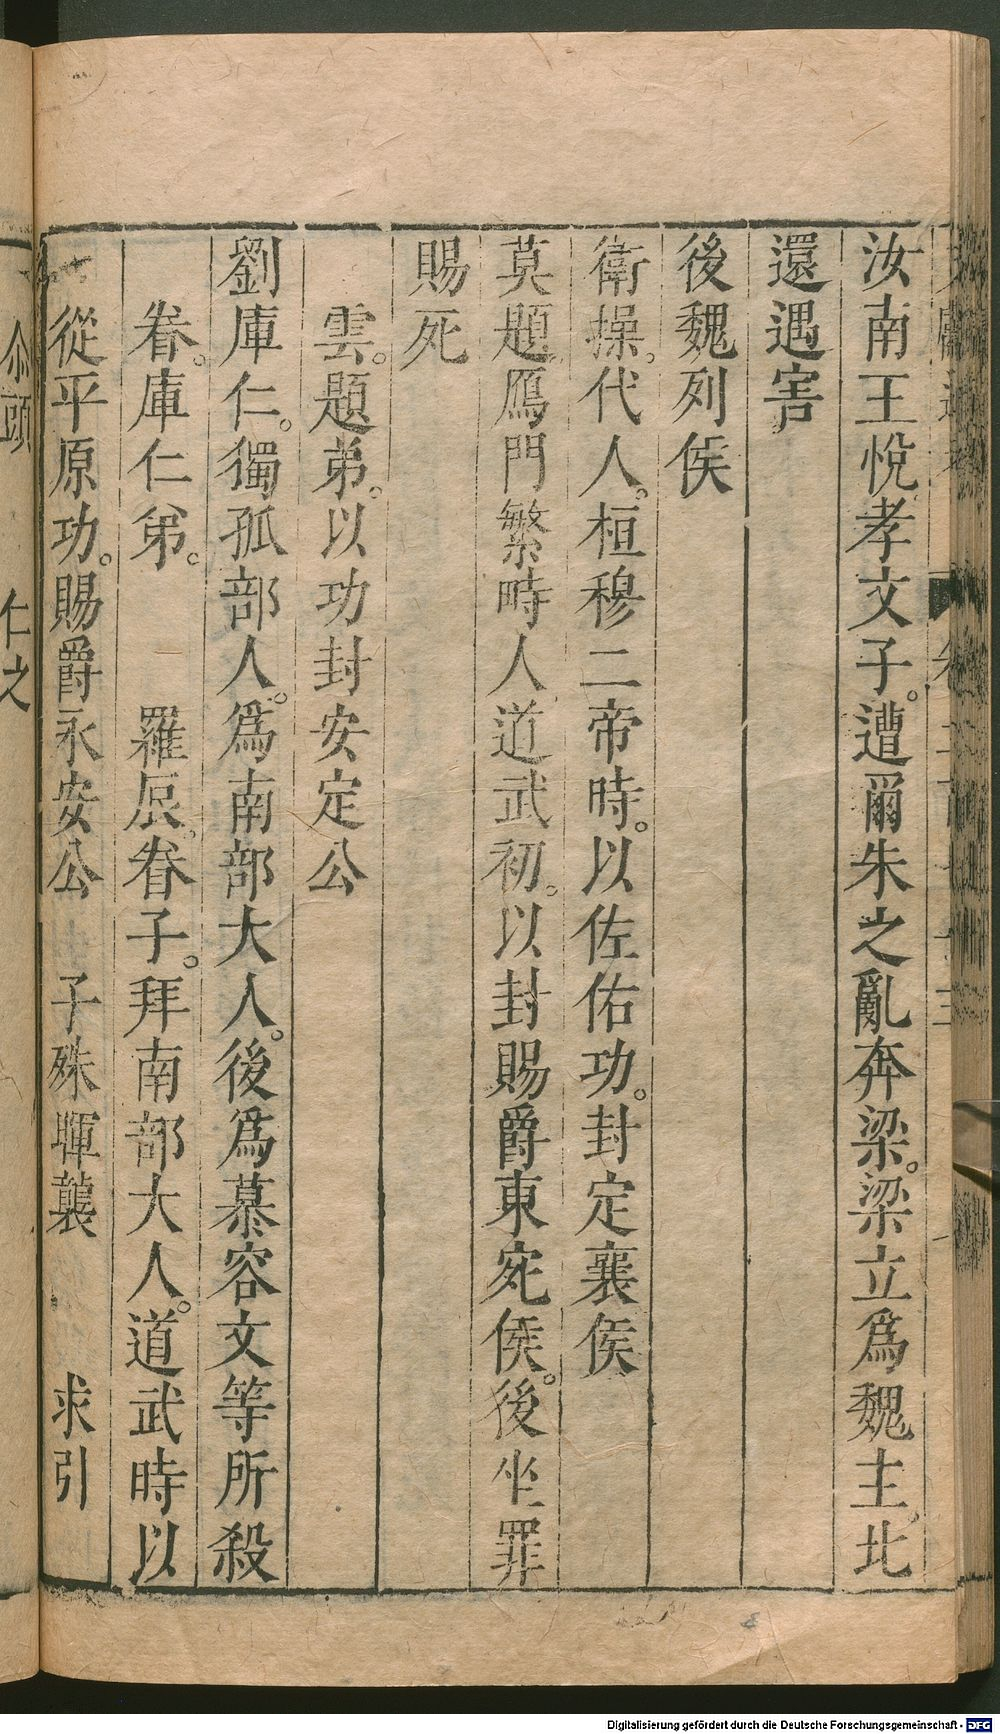 汝南王悅孝文子。遭爾朱之亂奔梁。梁立爲魏主。北
還遇害
後魏列侯
衛操。代人。桓穆二帝時。以佐佑功。封定襄侯
莫題鴈門繁畤人道武初。以封賜爵東宛侯。後坐罪
賜死
雲。題弟。以功封安定公
劉庫仁。獨孤部人。爲南部大人。後爲慕容文等所殺
眷。庫仁弟。 羅辰。眷子。拜南部大人。道武時以
從平原功。賜爵永安公 子殊暉襲 求引
尒頭 仁之
Digitalisierung gefördert durch die Deutsche Forschungsgemeinschaft - DFG